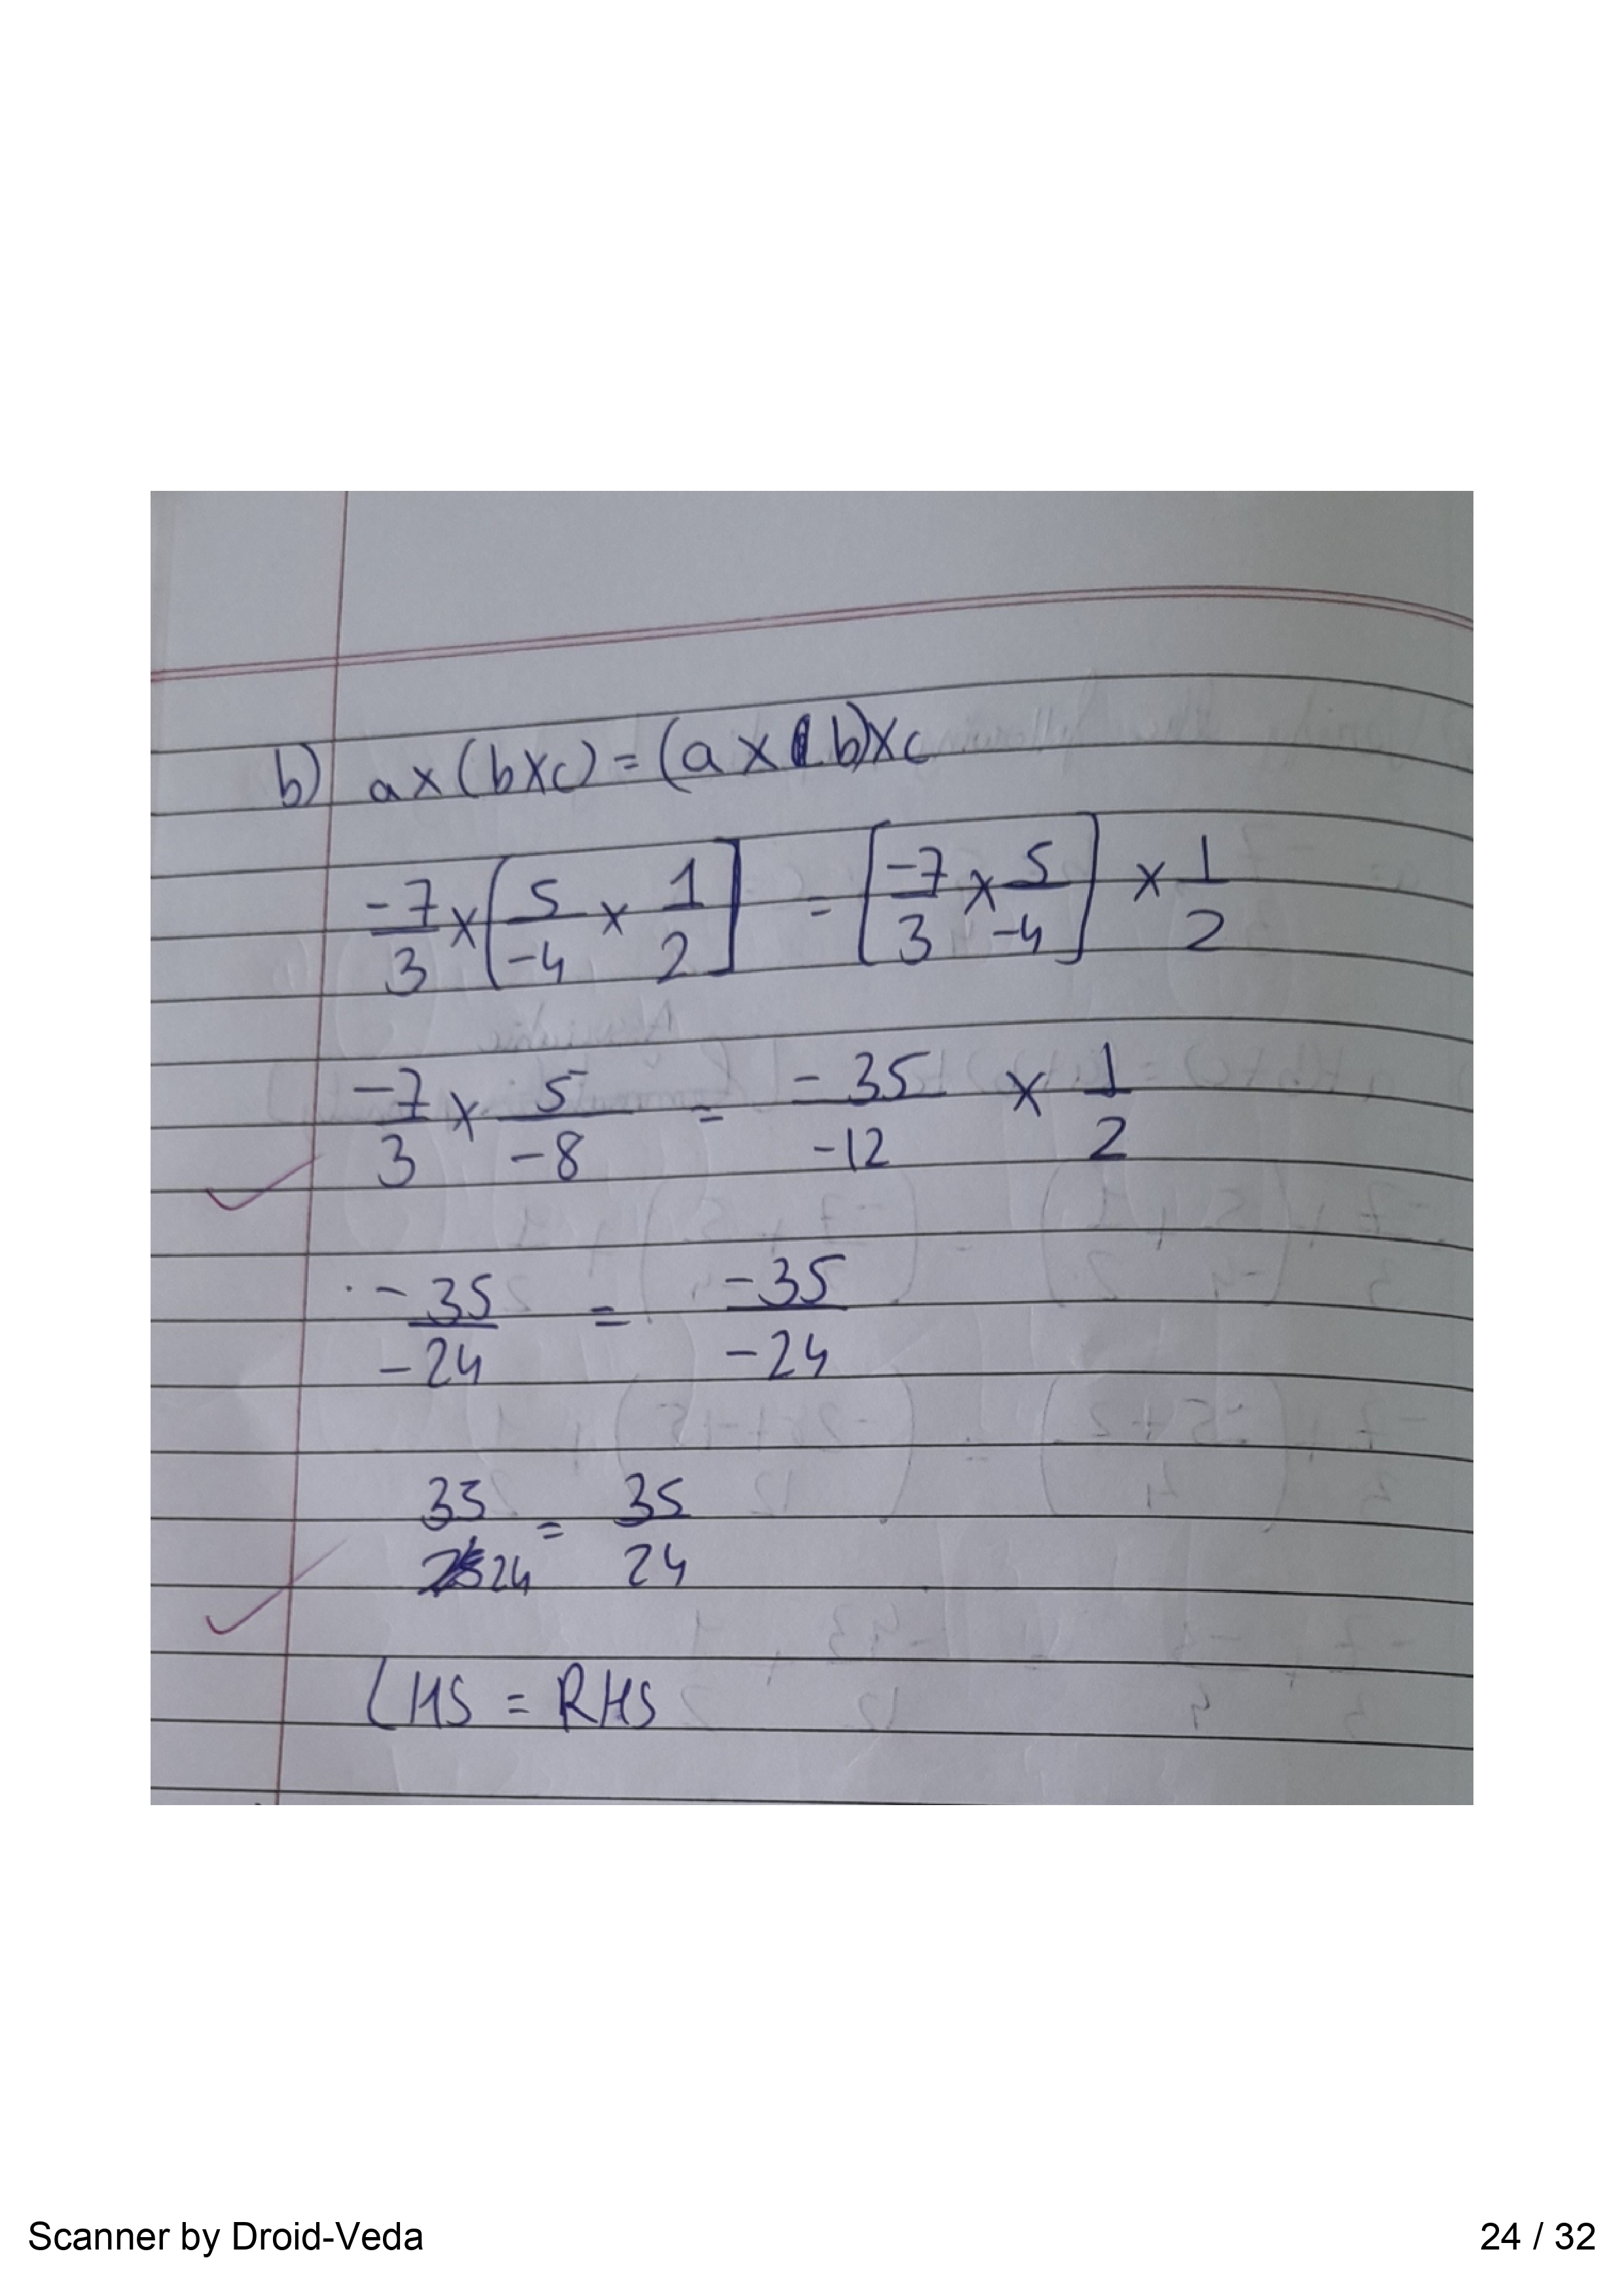 b) a×(b×c) = (a×b)×c
-7/3 × [5/-4 × 1/2] = [-7/3 × 5/-4] × 1/2
-7/3 × 5/-8 = -35/-12 × 1/2
-35/-24 = -35/-24
35/24 = 35/24
LHS = RHS
Scanner by Droid-Veda
24 / 32